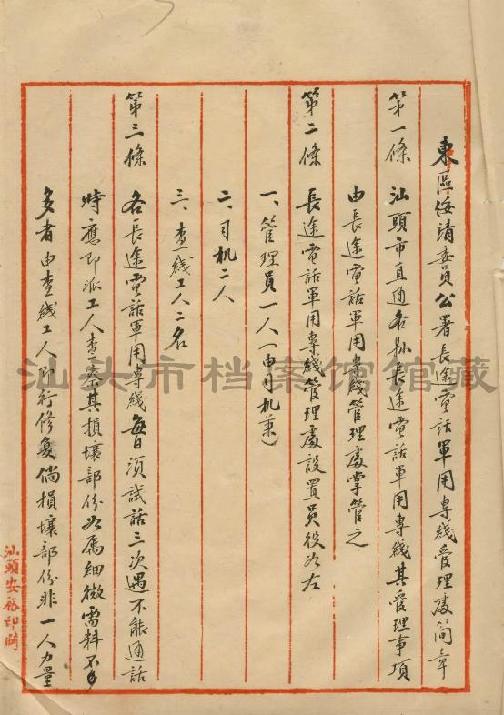 東區綏靖委員公署長途電話軍用專綫管理處簡章
第一條　汕頭市直通各縣長途電話軍用專綫其管理事項
由長途電話軍用專綫管理處掌管之
第二條　長途電話軍用專綫管理處設置員役如左
一、管理員一人（由司机兼）
二、司机二人
三、查綫工人二名
第三條　各長途電話軍用專綫每日須試話三次遇不能通話
時應即派工人查察其損壞部份如属細微需料不
多者由查綫工人即行修復倘損壞部份非一人力量
汕頭市档案馆馆藏
汕頭安裕印